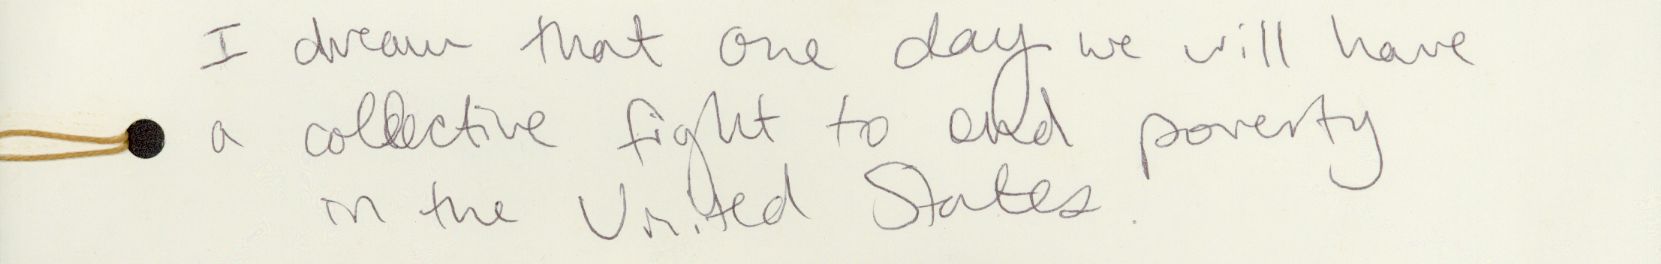 I dream that one day we will have
a collective fight to end poverty
in the United States.